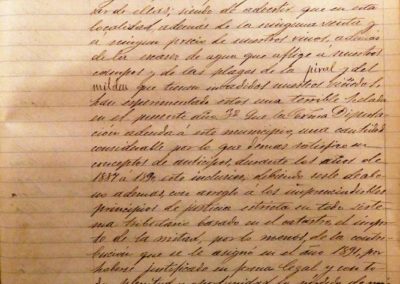 lor de ellas; siendo de advertir que en esta
localidad además de la ninguna venta y
a ningun precio de nuestros vinos, además
de la escasez de agua que aflige á nuestros
campos y de las plagas de la piral y del
mildeu que tienen invadidos nuestros viñedos,
han esperimentado estos una terrible helada
en el presente año 3º Que la Excma Diputa-
cion adeuda á este municipio, una cantidad
considerable por lo que demas satisfizo en
conceptos de anticipos, durante los años de
1887 á 1890 este inclusive, debiendo serle de abo-
no ademas, con arreglo á los imprescindibles
principios de justicia estricta en todo siste-
ma tributario basado en el catastro, el impor-
te de la mitad, por lo menos, de la contri-
bucion que se le asignó en el año 1891, por
haberse justificado en forma legal y con to-
da plenitud y oportunidad la pérdida de